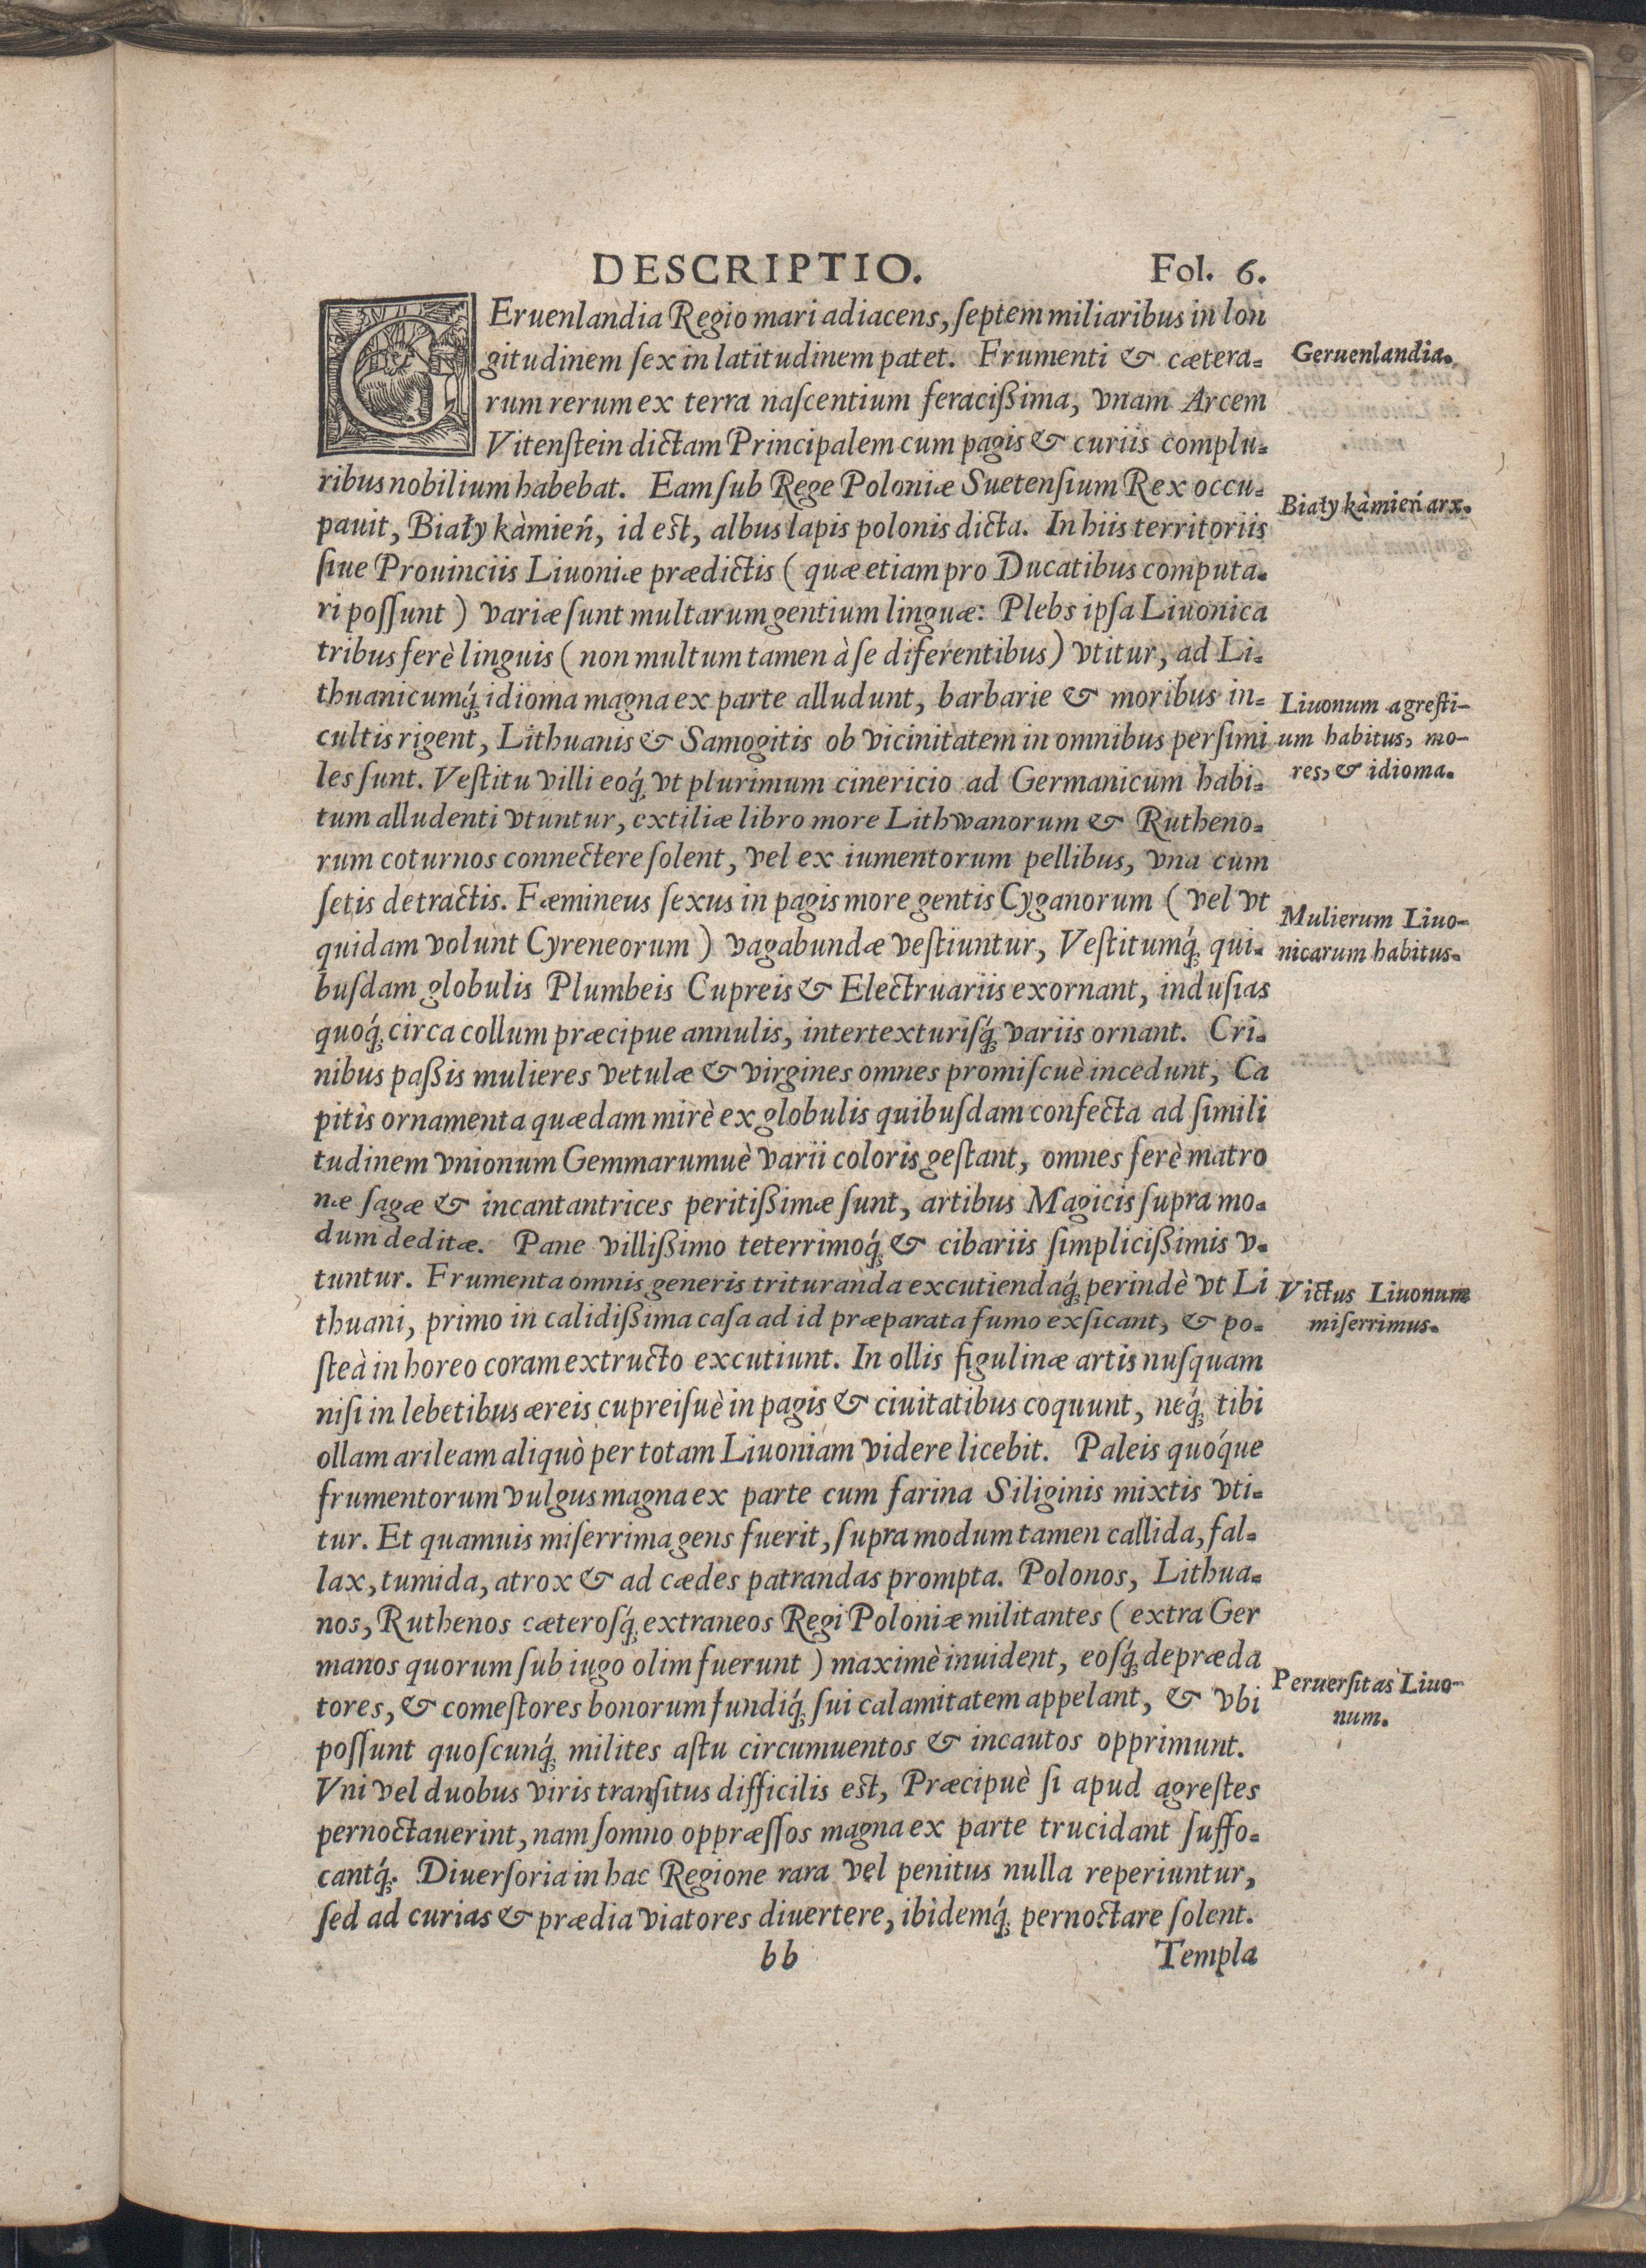 DESCRIPTIO. Fol. 6.
GEruenlandia Regio mari adiacens, ſeptem miliaribus in lon
gitudinem ſex in latitudinem patet. Frumenti & cætera-
rum rerum ex terra naſcentium feracißima, vnam Arcem
Vitenſtein dictam Principalem cum pagis & curiis complu-
ribus nobilium habebat. Eam ſub Rege Poloniæ Suetenſium Rex occu-
pauit, Biały kàmień, id est, albus lapis polonis dicta. In hiis territoriis
ſiue Prouinciis Liuoniæ prædictis ( quæ etiam pro Ducatibus computa-
ri poſſunt ) variæ ſunt multarum gentium linguæ: Plebs ipſa Liuonica
tribus ferè linguis ( non multum tamen à ſe diferentibus ) vtitur, ad Li-
thuanicumq́ꝫ idioma magna ex parte alludunt, barbarie & moribus in-
cultis rigent, Lithuanis & Samogitis ob vicinitatem in omnibus perſimi
les ſunt. Veſtitu villi eoq́ꝫ vt plurimum cinericio ad Germanicum habi-
tum alludenti vtuntur, extiliæ libro more Lithwanorum & Rutheno-
rum coturnos connectere ſolent, vel ex iumentorum pellibus, vna cum
ſetis detractis. Fæmineus ſexus in pagis more gentis Cyganorum ( vel vt
quidam volunt Cyreneorum ) vagabundæ veſtiuntur, Veſtitumq́ꝫ qui-
buſdam globulis Plumbeis Cupreis & Electruariis exornant, induſias
quoq́ꝫ circa collum præcipue annulis, intertexturiſq́ꝫ variis ornant. Cri-
nibus paßis mulieres vetulæ & virgines omnes promiſcuè incedunt, Ca
pitis ornamenta quædam mirè ex globulis quibuſdam confecta ad ſimili
tudinem vnionum Gemmarumuè varii coloris geſtant, omnes ferè matro
næ ſagæ & incantantrices peritißimæ ſunt, artibus Magicis ſupra mo-
dum deditæ. Pane villißimo teterrimoq́ꝫ & cibariis ſimplicißimis v-
tuntur. Frumenta omnis generis trituranda excutiendaq́ꝫ perindè vt Li
thuani, primo in calidißima caſa ad id præparata fumo exſicant, & po-
ſteà in horeo coram extructo excutiunt. In ollis figulinæ artis nuſquam
niſi in lebetibus æreis cupreiſuè in pagis & ciuitatibus coquunt, neq́ꝫ tibi
ollam arileam aliquò per totam Liuoniam videre licebit. Paleis quóque
frumentorum vulgus magna ex parte cum farina Siliginis mixtis vti-
tur. Et quamuis miſerrima gens fuerit, ſupra modum tamen callida, fal-
lax, tumida, atrox & ad cædes patrandas prompta. Polonos, Lithua-
nos, Ruthenos cæteroſq́ꝫ extraneos Regi Poloniæ militantes ( extra Ger
manos quorum ſub iugo olim fuerunt ) maximè inuident, eoſq́ꝫ depræda
tores, & comeſtores bonorum fundiq́ꝫ ſui calamitatem appelant, & vbi
poſſunt quoſcunq́ꝫ milites aſtu circumuentos & incautos opprimunt.
Vni vel duobus viris tranſitus difficilis est, Præcipuè ſi apud agreſtes
pernoctauerint, nam ſomno oppræſſos magna ex parte trucidant ſuffo-
cantq́ꝫ. Diuerſoria in hac Regione rara vel penitus nulla reperiuntur,
ſed ad curias & prædia viatores diuertere, ibidemq́ꝫ pernoctare ſolent.
bb Templa
Geruenlandia.
Biały kàmień arx.
Liuonum agreſti-
um habitus, mo-
res, & idioma.
Mulierum Liuo-
nicarum habitus.
Victus Liuonum
miſerrimus.
Peruerſitas Liuo-
num.